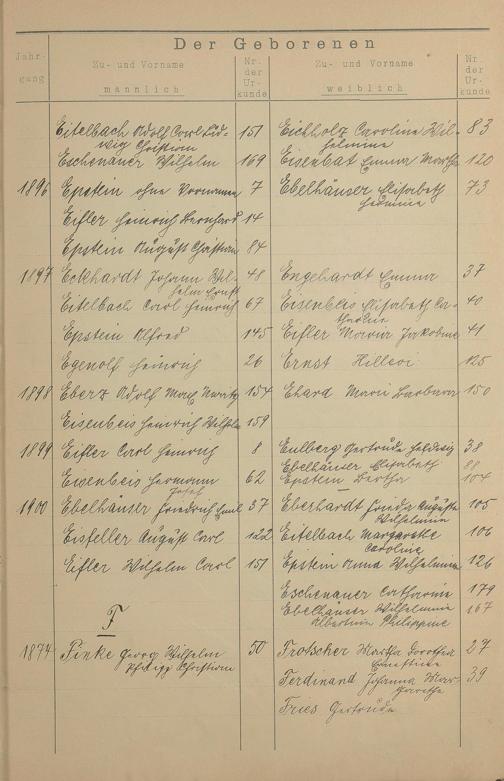 Der Geborenen
Jahr-
gang
Zu- und Vorname
männlich
Nr.
der
Ur-
kunde
Zu- und Vorname
weiblich
Nr.
der
Ur-
kunde
Eitelbach Adolf Carl Lud- 151 Eichholz Caroline Wil- 83
wig Christian helmine
Eschenauer Wilhelm 169 Eisenbat Emma Martha 120
1896 Epstein ohne Vornamen 7 Ebelhäuser Elisabeth 73
Hedwine
Eifler Heinrich Bernhard 14
Epstein August Christian 84
1897 Eckhardt Johann Wil- 48 Engehardt Emma 37
helm Ernst
Eitelbach Carl Heinrich 67 Eisenbeis Elisabeth Ca- 40
tharine
Epstein Alfred 145 Eifler Maria Jakobine 41
Egenolf Heinrich 26 Ernst 125
1898 Eberz Adolf Max Moritz 154 Ehard Marie Barbara 150
Eisenbeis Heinrich Wilhelm 159
1899 Eifler Carl Heinrich 8 Eulberg Gertrude Hedwig 38
Ebelhäuser Elisabeth 88
Eisenbeis Hermann 62 Epstein Bertha 104
Josef
1900 Ebelhäuser Friedrich Emil 37 Eberhardt Frieda Auguste 105
Wilhelmine
Eisfeller August Carl 122 Eitelbach Margarethe 106
Caroline
Eifler Wilhelm Carl 151 Epstein Anna Wilhelmine 126
Eschenauer Catharine 179
Ebelhäuser Wilhelmine 167
Albertine Philippine
F
1874 Finke Georg Wilhelm 50 Frotscher Martha Dorothea 27
Philipp Christian Ernestine
Ferdinand Johanna Mar- 39
garethe
Fries Gertrude